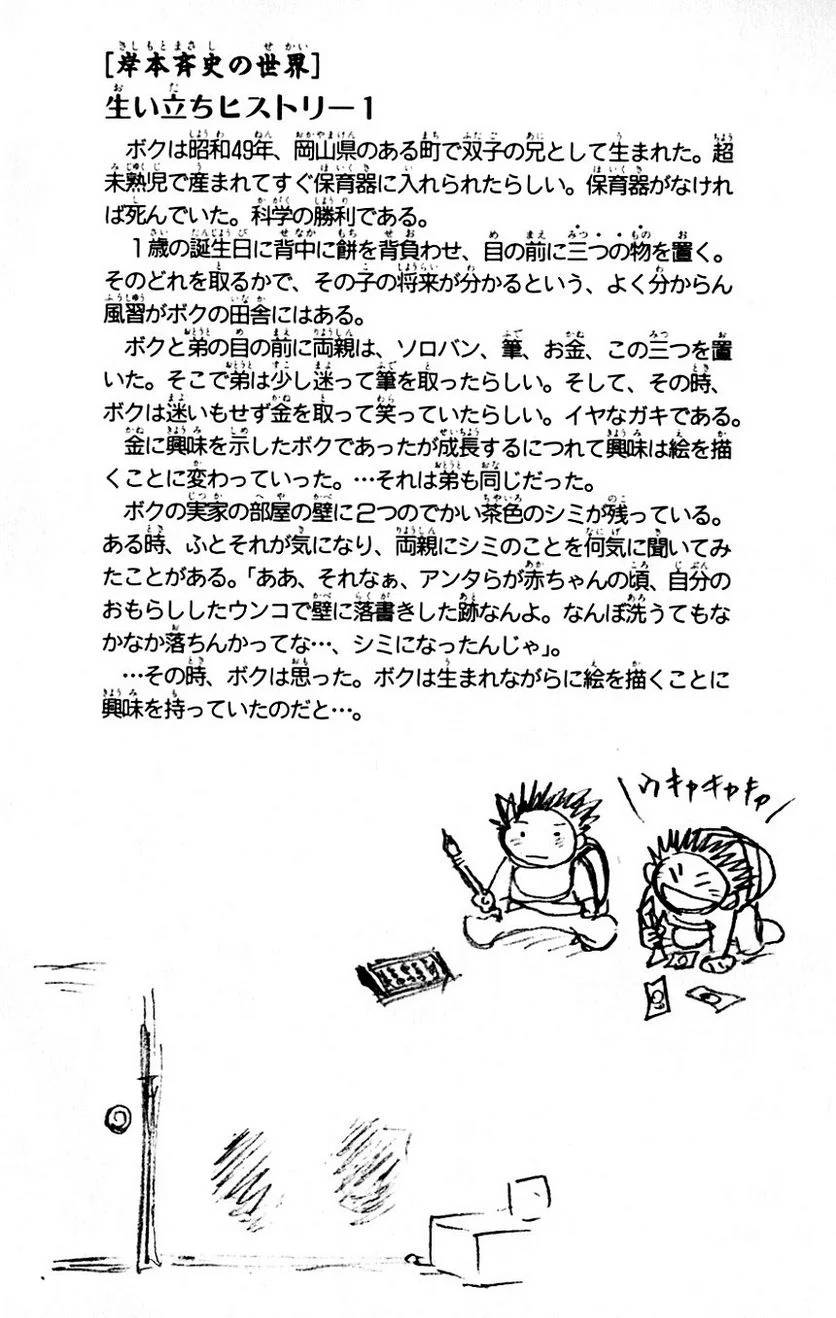 [岸本斉史の世界]
生い立ちヒストリー1
ボクは昭和49年、岡山県のある町で双子の兄として生まれた。超
未熟児で産まれてすぐ保育器に入れられたらしい。保育器がなけれ
ば死んでいた。科学の勝利である。
1歳の誕生日に背中に餅を背負わせ、目の前に三つの物を置く。
そのどれを取るかで、その子の将来が分かるという、よく分からん
風習がボクの田舎にはある。
ボクと弟の目の前に両親は、ソロバン、筆、お金、この三つを置
いた。そこで弟は少し迷って筆を取ったらしい。そして、その時、
ボクは迷いもせず金を取って笑っていたらしい。イヤなガキである。
金に興味を示したボクであったが成長するにつれて興味は絵を描
くことに変わっていった。…それは弟も同じだった。
ボクの実家の部屋の壁に2つのでかい茶色のシミが残っている。
ある時、ふとそれが気になり、両親にシミのことを何気に聞いてみ
たことがある。「ああ、それなぁ、アンタらが赤ちゃんの頃、自分の
おもらししたウンコで壁に落書きした跡なんよ。なんぼ洗うてもな
かなか落ちんかってな…、シミになったんじゃ」。
…その時、ボクは思った。ボクは生まれながらに絵を描くことに
興味を持っていたのだと…。
ウキャキャキャ